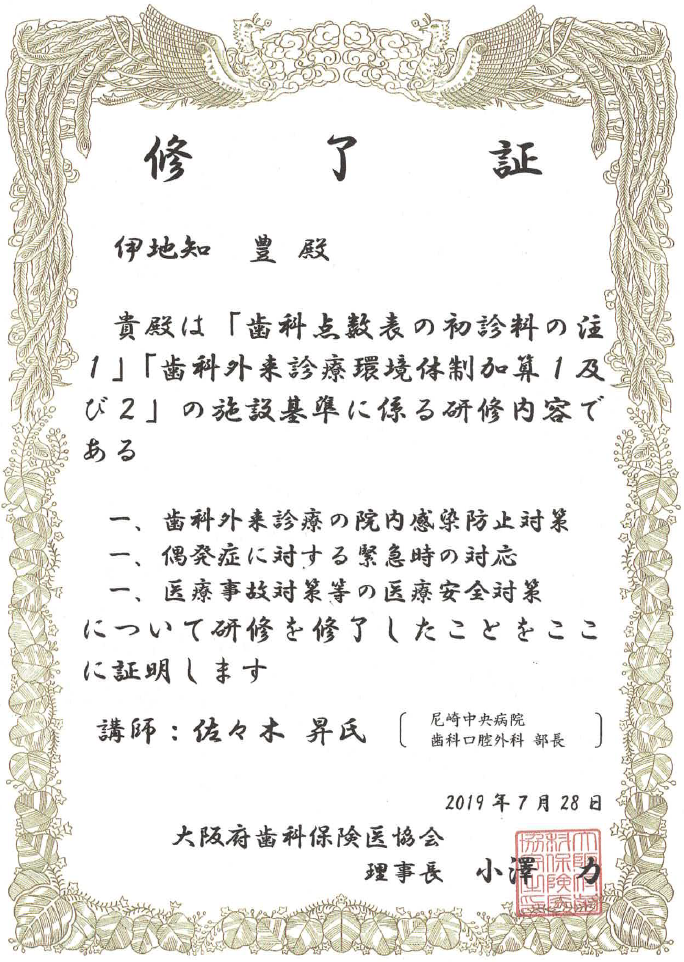 修了証
伊地知 豊 殿
貴殿は「歯科点数表の初診料の注
1」「歯科外来診療環境体制加算1及
び2」の施設基準に係る研修内容で
ある
一、歯科外来診療の院内感染防止対策
一、偶発症に対する緊急時の対応
一、医療事故対策等の医療安全対策
について研修を修了したことをここ
に証明します
講師：佐々木 昇氏
尼崎中央病院
歯科口腔外科 部長
2019年7月28日
大阪府歯科保険医協会
理事長 小澤 力